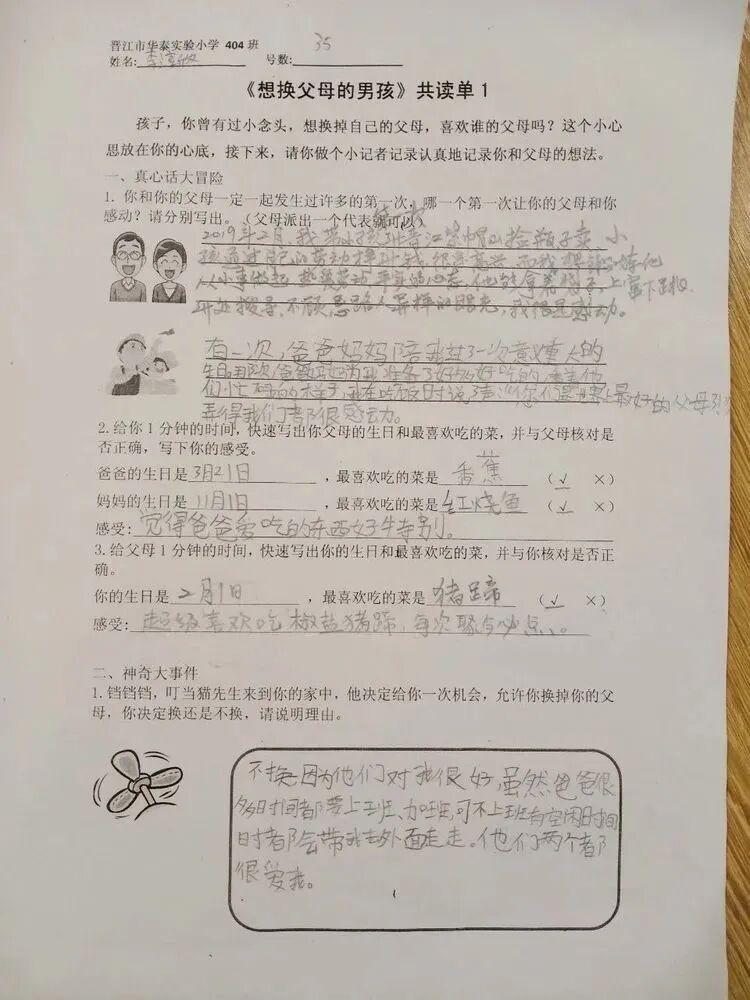 晋江市华泰实验小学 404 班
姓名: 号数: 35
《想换父母的男孩》共读单 1
孩子，你曾有过小念头，想换掉自己的父母，喜欢谁的父母吗？这个小心
思放在你的心底，接下来，请你做个小记者记录认真地记录你和父母的想法。
一、真心话大冒险
1. 你和你的父母一定一起发生过许多的第一次，哪一个第一次让你的父母和你
感动？请分别写出。（父母派出一个代表就可以）
2019年2月,我带小孩到晋江紫帽山捡瓶子卖,小
孩通过自己的劳动
从小事做起 他能拿着袋子,上窜下跳
不顾 路人异样的眼光,我很是感动。
有一次,爸爸妈妈陪我过了一次意义重大的
生日 爸爸妈妈为我准备了好多好吃的,
们忙碌的样子,我在吃饭时说了声:"你们 最好的父母
弄得我们都很感动。
2. 给你 1 分钟的时间，快速写出你父母的生日和最喜欢吃的菜，并与父母核对是
否正确，写下你的感受。
爸爸的生日是 3月21日 ，最喜欢吃的菜是 香蕉 （√ ×）
妈妈的生日是 11月1日 ，最喜欢吃的菜是 红烧鱼 （√ ×）
感受: 觉得爸爸爱吃的东西好特别。
3. 给父母 1 分钟的时间，快速写出你的生日和最喜欢吃的菜，并与你核对是否正
确。
你的生日是 2月1日 ，最喜欢吃的菜是 猪蹄 （√ ×）
感受: 超级喜欢吃椒盐猪蹄,每次聚会必点。
二、神奇大事件
1. 铛铛铛，叮当猫先生来到你的家中，他决定给你一次机会，允许你换掉你的父
母，你决定换还是不换，请说明理由。
不换,因为他们对我很好,虽然爸爸很
多时间都要上班、加班,可不上班有空闲时间
时都会带我去外面走走。他们两个都
很爱我。